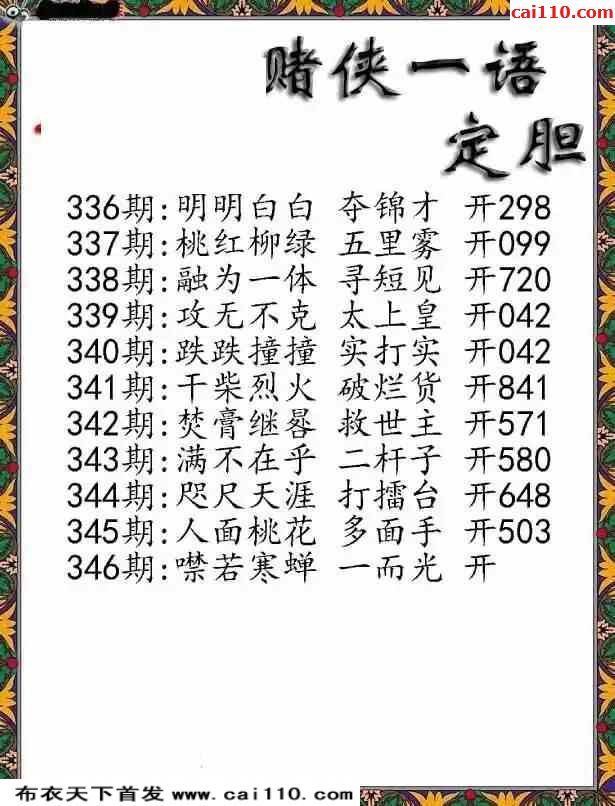 彩吧
cai110.com
赌侠一语
定胆
336期:明明白白 夺锦才 开298
337期:桃红柳绿 五里雾 开099
338期:融为一体 寻短见 开720
339期:攻无不克 太上皇 开042
340期:跌跌撞撞 实打实 开042
341期:干柴烈火 破烂货 开841
342期:焚膏继晷 救世主 开571
343期:满不在乎 二杆子 开580
344期:咫尺天涯 打擂台 开648
345期:人面桃花 多面手 开503
346期:噤若寒蝉 一而光 开
布衣天下首发 www.cai110.com